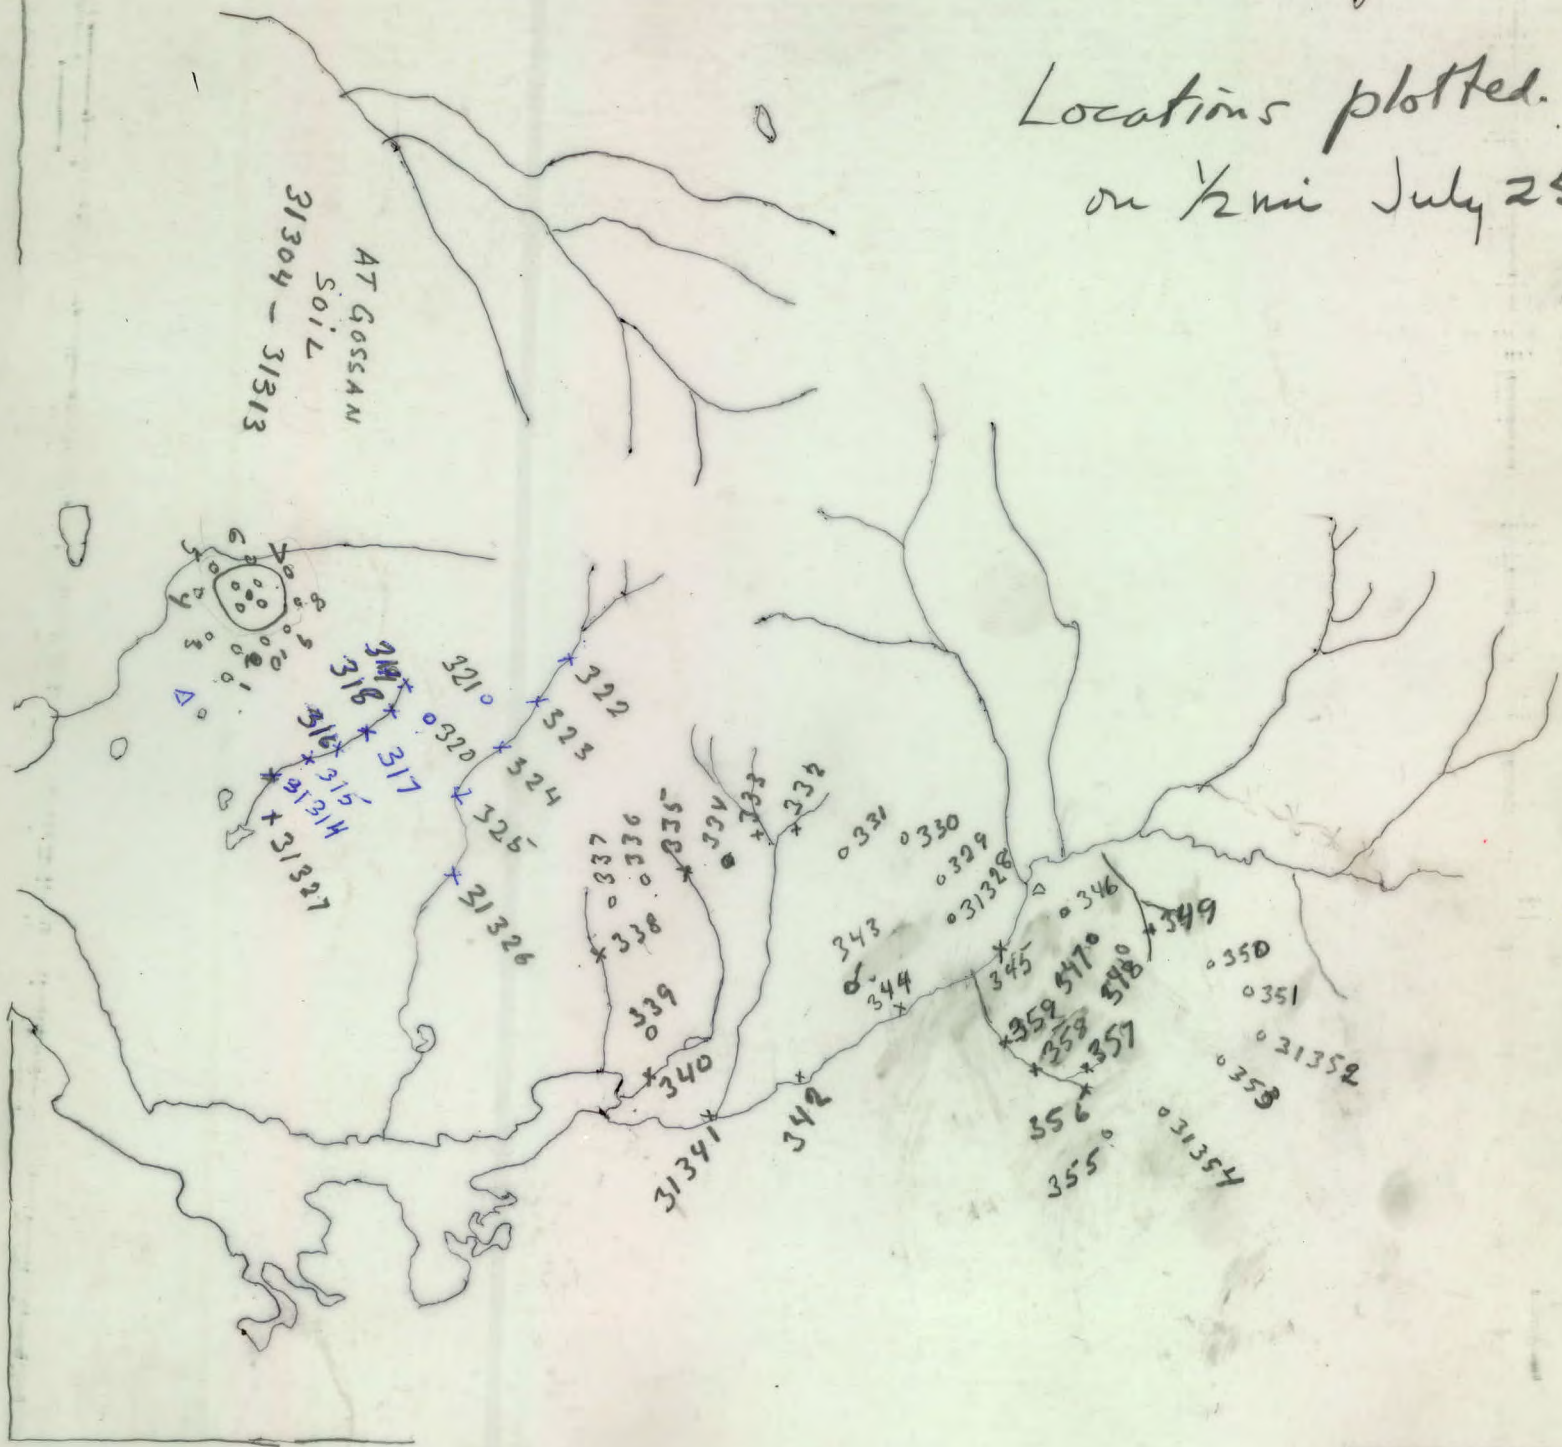 Locations plotted.
on 1/2 mi July
AT GOSSAN
SOIL
31304 - 31313
6
7
5
8
4
9
3
10
2
1
319
318
316
315
31314
317
31327
320
321
322
323
324
325
31326
337
336
335
334
333
332
331
330
329
31328
338
339
340
31341
342
343
344
345
346
347
348
349
350
351
31352
353
31354
355
356
357
358
359